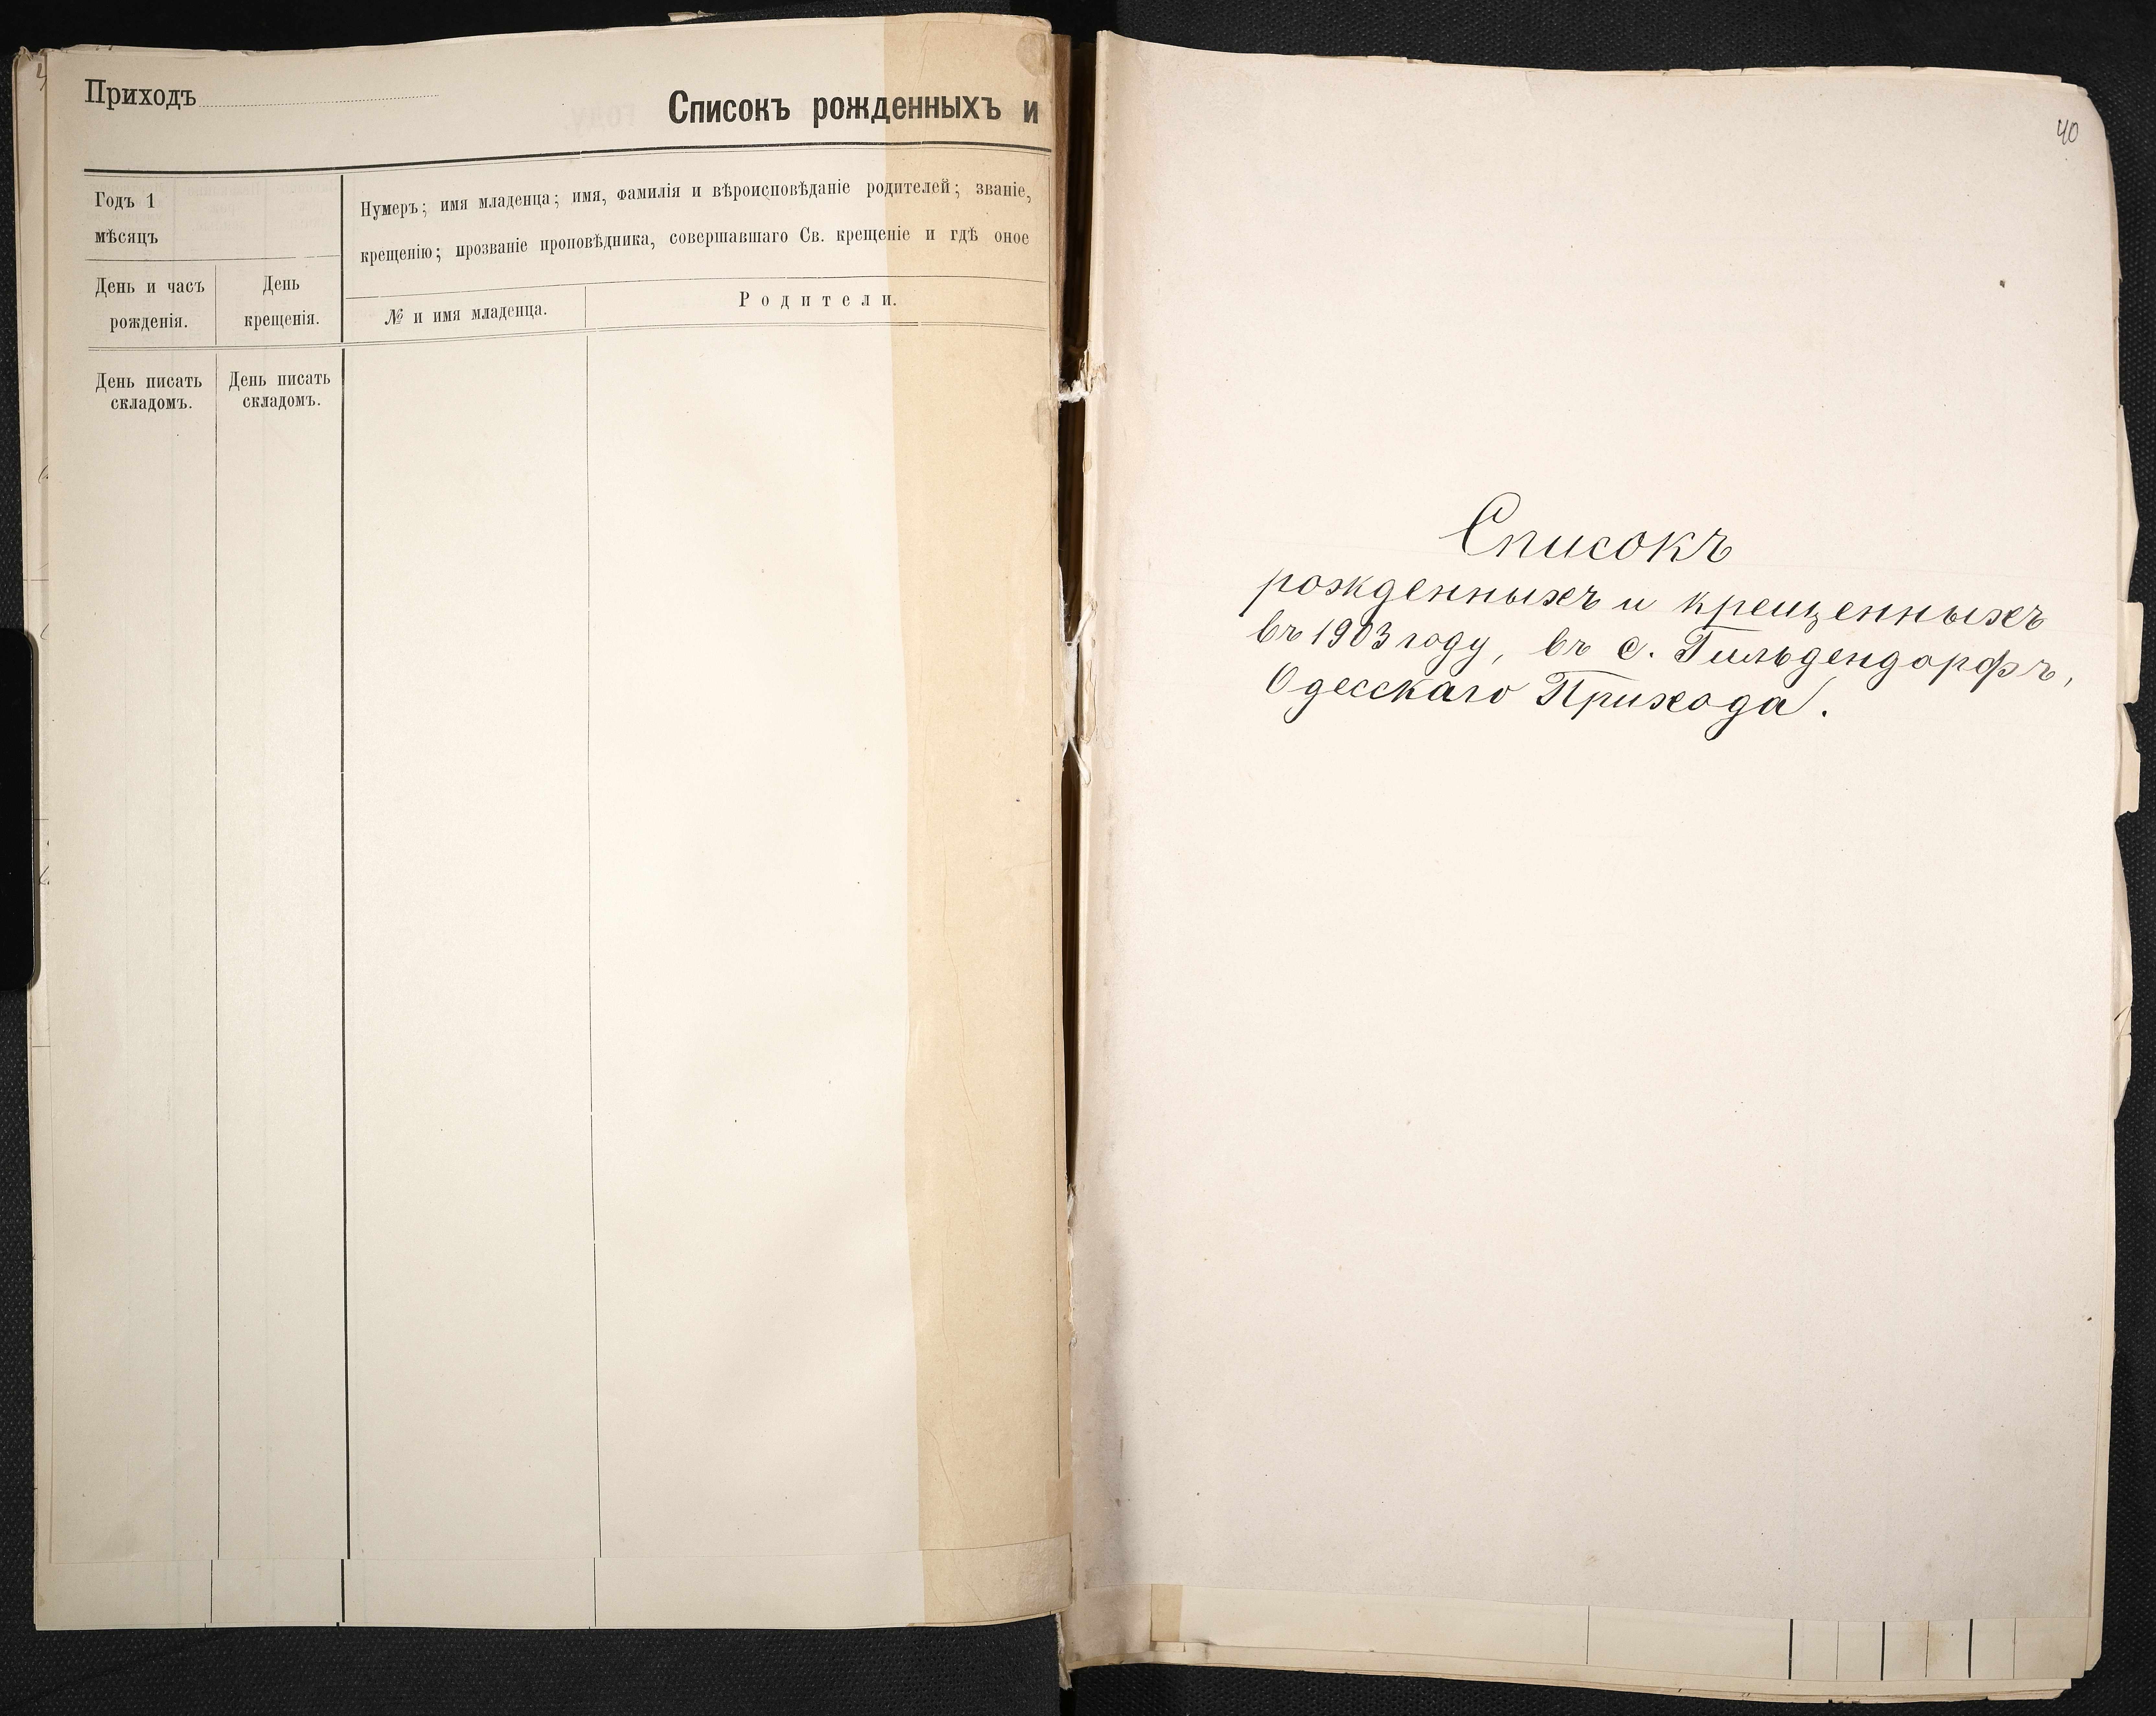 Приходъ
Списокъ рожденныхъ и
Годъ 1
мѣсяцъ
Нумеръ; имя младенца; имя, фамилія и вѣроисповѣданіе родителей; званіе,
крещенію; прозваніе проповѣдника, совершавшаго Св. крещеніе и гдѣ оное
День и часъ
рожденія.
День
крещенія.
№ и имя младенца.
Родители.
День писать
складомъ.
День писать
складомъ.
40
Списокъ
рожденныхъ и крещенныхъ
въ 1903 году, въ с. Гильдендорфъ,
Одесскаго Прихода.